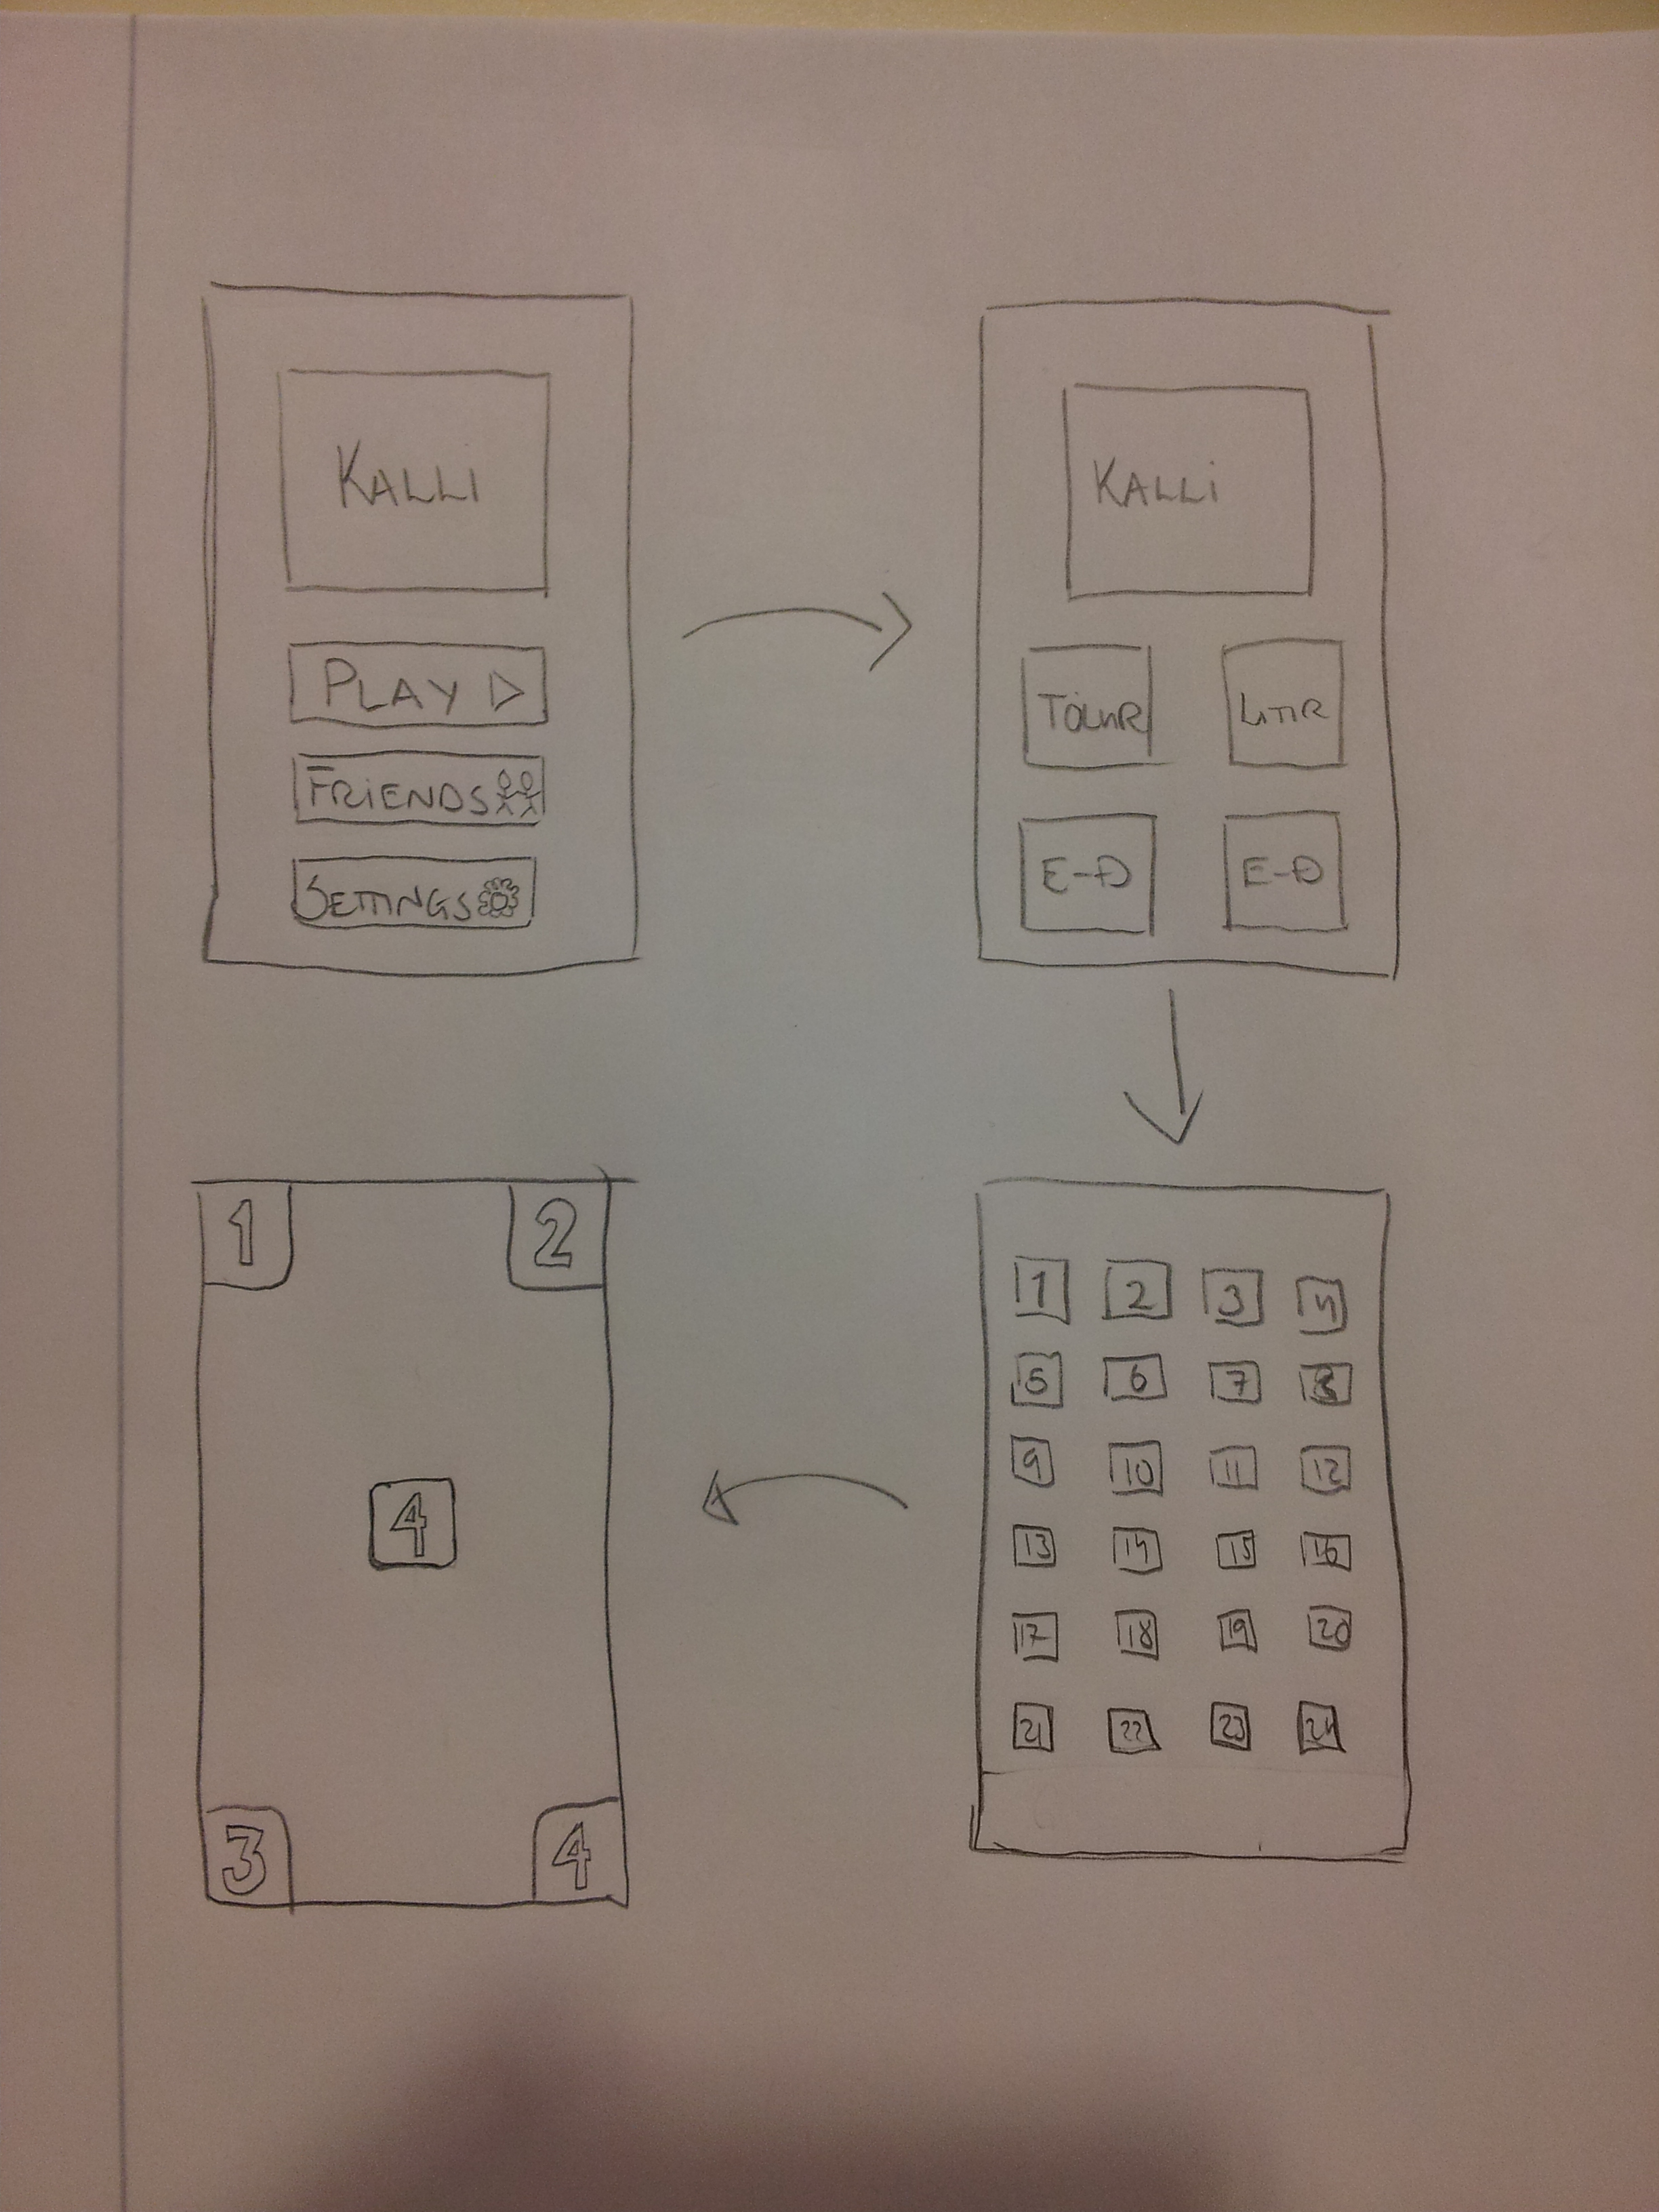 KALLI
PLAY
FRIENDS
SETTINGS
KALLI
TÖLUR LITIR
E-Ð E-Ð
1 2 3 4
5 6 7 8
9 10 11 12
13 14 15 16
17 18 19 20
21 22 23 24
1 2
4
3 4